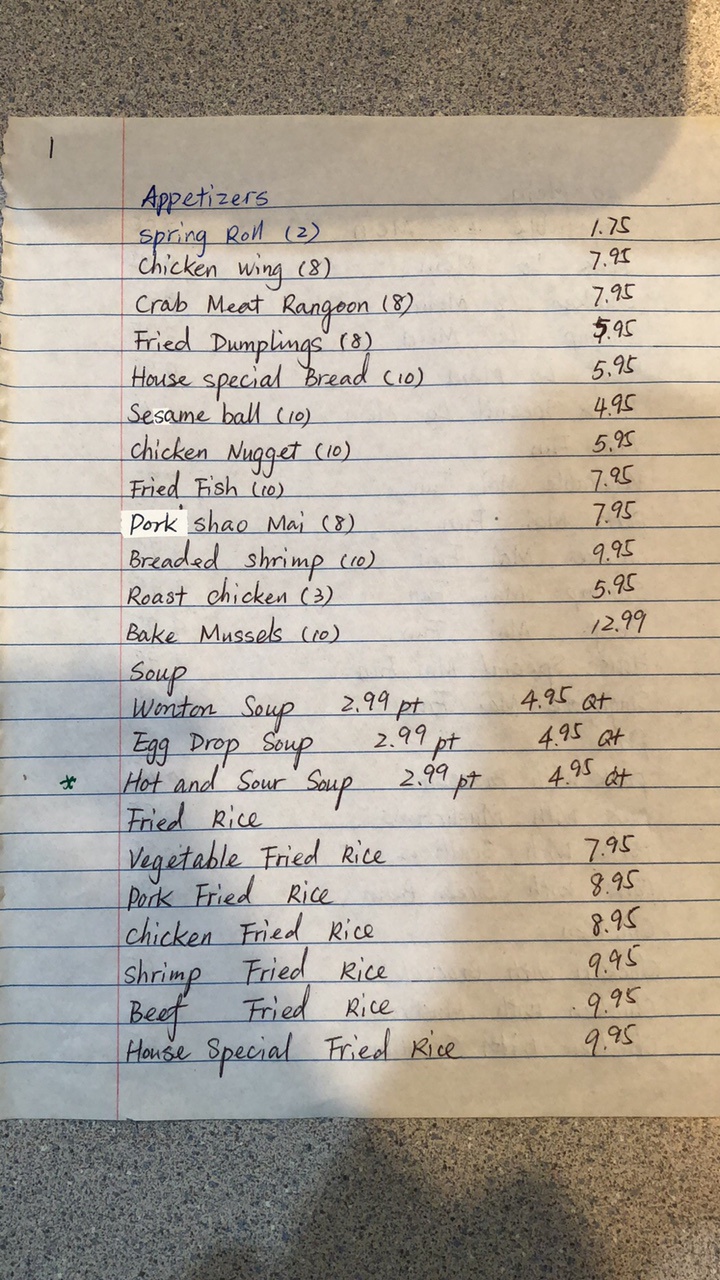 1
Appetizers
Spring Roll (2) 1.75
Chicken wing (8) 7.95
Crab Meat Rangoon (8) 7.95
Fried Dumplings (8) 5.95
House special Bread (10) 5.95
Sesame ball (10) 4.95
Chicken Nugget (10) 5.95
Fried Fish (10) 7.95
Pork shao Mai (8) 7.95
Breaded shrimp (10) 9.95
Roast chicken (3) 5.95
Bake Mussels (10) 12.99
Soup
Wonton Soup 2.99 pt 4.95 Qt
Egg Drop Soup 2.99 pt 4.95 Qt
* Hot and Sour Soup 2.99 pt 4.95 Qt
Fried Rice
Vegetable Fried Rice 7.95
Pork Fried Rice 8.95
Chicken Fried Rice 8.95
Shrimp Fried Rice 9.95
Beef Fried Rice 9.95
House Special Fried Rice 9.95